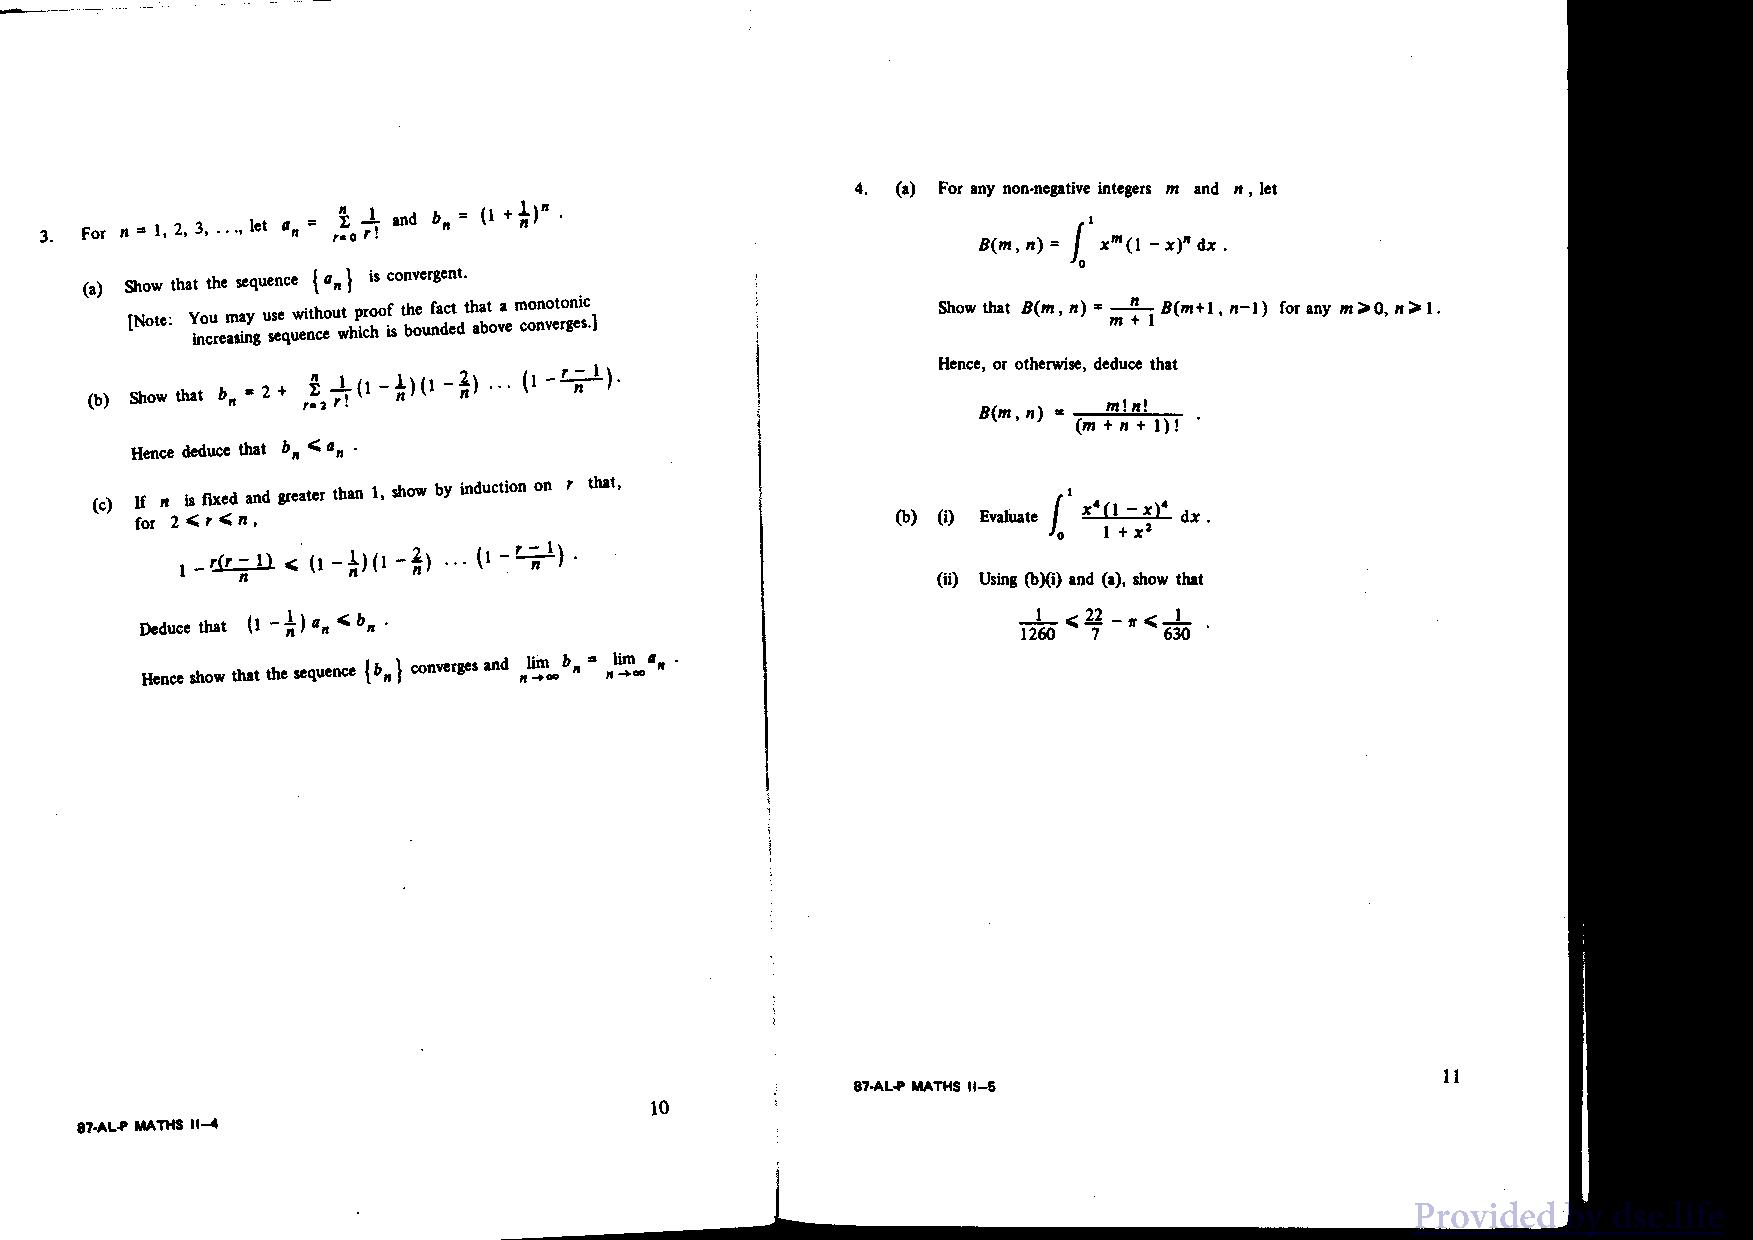 3. For n = 1, 2, 3, ..., let a_n = Σ_{r=0}^{n} 1/r! and b_n = (1 + 1/n)^n .
(a) Show that the sequence {a_n} is convergent.
[Note: You may use without proof the fact that a monotonic
increasing sequence which is bounded above converges.]
(b) Show that b_n = 2 + Σ_{r=2}^{n} 1/r! (1 − 1/n)(1 − 2/n) ... (1 − (r − 1)/n).
Hence deduce that b_n ⩽ a_n .
(c) If n is fixed and greater than 1, show by induction on r that,
for 2 ⩽ r ⩽ n ,
1 − r(r − 1)/n ⩽ (1 − 1/n)(1 − 2/n) ... (1 − (r − 1)/n) .
Deduce that (1 − 1/n) a_n ⩽ b_n .
Hence show that the sequence {b_n} converges and lim_{n→∞} b_n = lim_{n→∞} a_n .
87-AL-P MATHS II–4
10
4. (a) For any non-negative integers m and n , let
B(m, n) = ∫_0^1 x^m (1 − x)^n dx .
Show that B(m, n) = n/(m + 1) B(m+1, n−1) for any m ⩾ 0, n ⩾ 1.
Hence, or otherwise, deduce that
B(m, n) = m! n!/(m + n + 1)! .
(b) (i) Evaluate ∫_0^1 x^4(1 − x)^4/(1 + x^2) dx .
(ii) Using (b)(i) and (a), show that
1/1260 ⩽ 22/7 − π ⩽ 1/630 .
87-AL-P MATHS II–5
11
Provided by dse.life